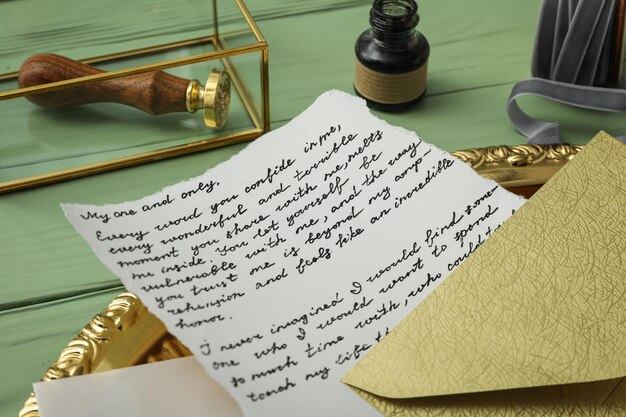 My one and only,
Every word you confide in me,
every wonderful and terrible
moment you share with me, melts
me inside. You let yourself be
vulnerable with me, and the way
you trust me is beyond my comp-
rehension and feels like an incredible
honor.
I never imagined I would find some
one who I would want to spend
so much time with, who could
touch my life